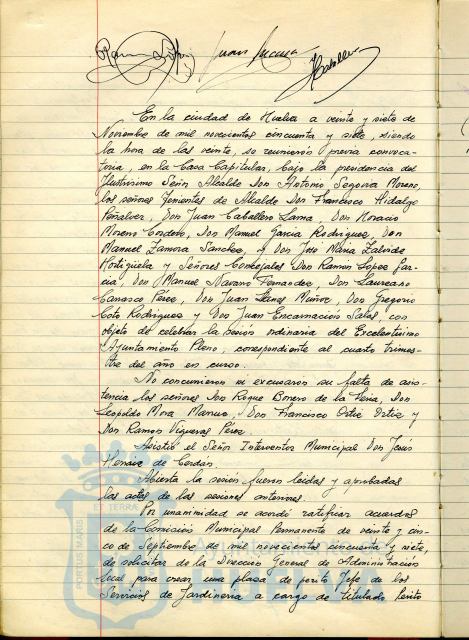 Juan
En la ciudad de Huelva a veinte y siete de
Noviembre de mil novecientos cincuenta y siete, siendo
la hora de las veinte, se reunieron previa convoca-
toria, en la Casa Capitular, bajo la presidencia del
Ilustrisimo Señor Alcalde Don Antonio Segovia Moreno,
los señores Tenientes de Alcalde Don Francisco Hidalgo
Peñalver, Don Juan Caballero Lama, Don Horacio
Moreno Cordero, Don Manuel Garcia Rodriguez, Don
Manuel Zamora Sanchez, y Don Jose Maria Zalvide
Hortigüela y Señores Concejales Don Ramon Lopez Gar-
cia, Don Manuel Navarro Fernandez, Don Laureano
Carrasco Pérez, Don Juan Muñoz, Don Gregorio
Coto Rodriguez y Don Juan Encarnación Salas, con
objeto de celebrar la sesión ordinaria del Excelentisimo
Ayuntamiento Pleno, correspondiente al cuarto trimes-
tre del año en curso.
No concurrieron ni excusaron su falta de asis-
tencia los señores Don Roque Borrero de la Don
Leopoldo Mora Don Francisco Ortiz Ortiz y
Don Ramon Vigueras Pérez.
Asistió el Señor Interventor Municipal Don Jesús
de Cerdan.
Abierta la sesión fueron leidas y aprobadas
las actas de las sesiones anteriores.
Por unanimidad se acordó ratificar acuerdos
de la Comisión Municipal Permanente de veinte y cin-
co de Septiembre de mil novecientos cincuenta y siete,
de solicitar de la Direccion General de Administracion
Local para crear una plaza de perito Jefe de los
Servicios de Jardineria a cargo de titulado Perito
PORTUS MARIS
ET TERRÆ